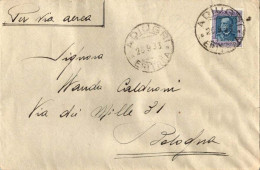 Per via aerea
ADUGRI
ERITREA
Signora
Wanda Calderoni
Via dei Mille 21
Bologna